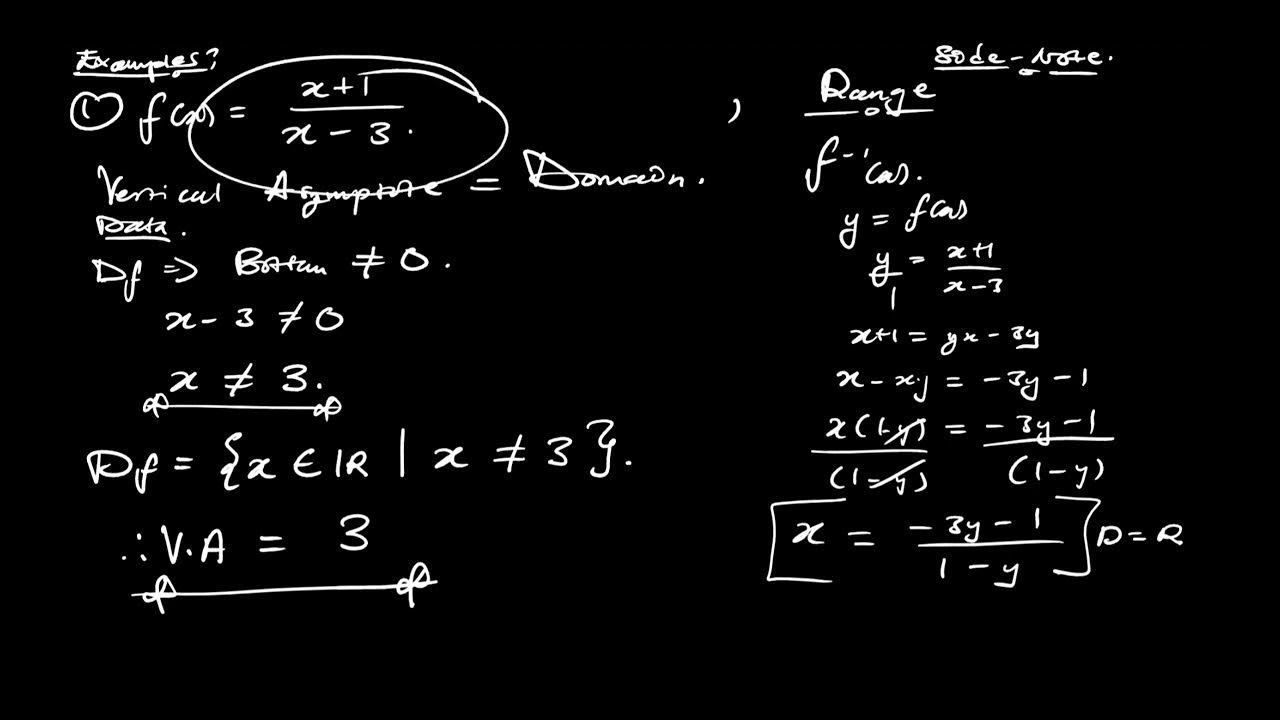 Examples?
① f(x) = x+1 / x-3.
Vertical Asymptote = Domain.
Data.
Df => Bottom ≠ 0.
x-3 ≠ 0
x ≠ 3.
Df = {x ∈ IR | x ≠ 3}.
∴ V.A = 3
Side-Note.
, Range
f⁻¹(x).
y = f(x)
y/1 = x+1 / x-3
x+1 = yx - 3y
x - xy = -3y - 1
x(1-y) / (1-y) = -3y-1 / (1-y)
[x = -3y-1 / 1-y] D = R